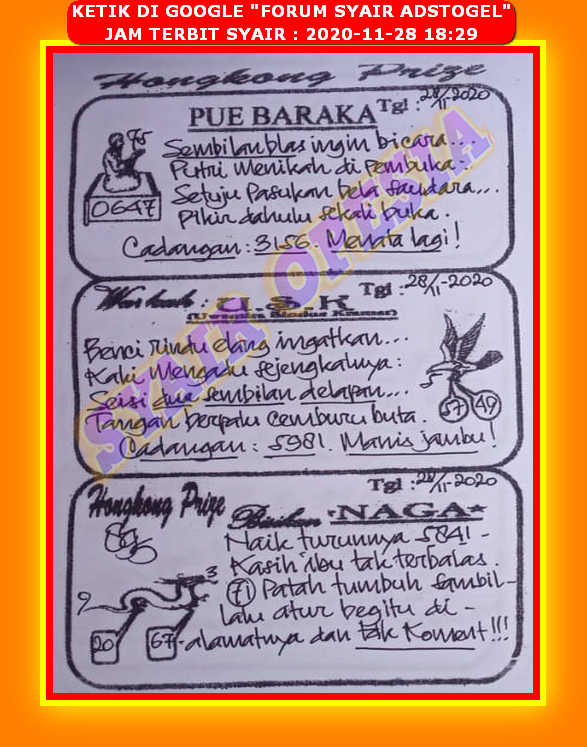 KETIK DI GOOGLE "FORUM SYAIR ADSTOGEL"
JAM TERBIT SYAIR : 2020-11-28 18:29
Hongkong Prize
PUE BARAKA Tgl : 28/11-2020
75
0647
Sembilanblas ingin bicara...
Putri Menikah di Pembuka :
Setuju Pasukan bela saudara...
Pikir dahulu sekali buka.
Cadangan : 3156. Menata lagi!
U.S.K Tgl : 28/11-2020
Benci rindu elang ingatkan...
Kaki Mengadu sejengkalnya :
Seisi dua sembilan delapan...
Tangan berpalu cemburu buta.
57 49
Cadangan : 5981. Manis jambu!
SYAIR OPESIA
Hongkong Prize
Tgl : 28/11-2020
Bisikan *NAGA*
Naik turunnya 5841 -
Kasih ibu tak terbalas.
71 Patah tumbuh sambil -
lalu atur begitu di -
alamatnya dan tak Koment!!!
9 3
20 67